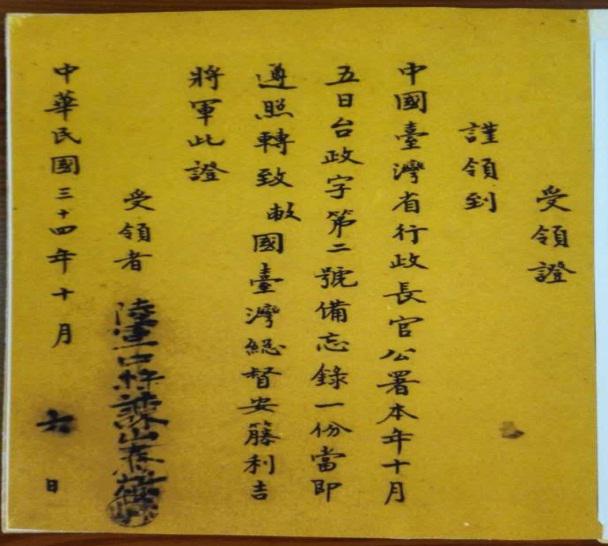 受領證
謹領到
中國臺灣省行政長官公署本年十月
五日台政字第二號備忘錄一份當即
遵照轉致 敝國臺灣総督安藤利吉
將軍此證
受領者 陸軍中將諫山春樹
中華民國三十四年十月 六 日